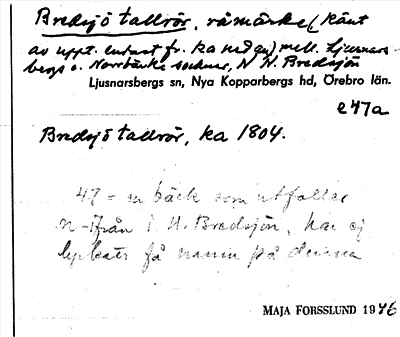 Bredsjö tallrör, råmärke (känt
av uppt. endast fr. ka nedan) mell. Ljusnars-
bergs o. Norrbärke socknar, N N. Bredsjön
Ljusnarsbergs sn, Nya Kopparbergs hd, Örebro län.
e47a
Bredsjö tallrör, ka 1804.
47 = en bäck som utfaller
n-ifrån i N. Bredsjön, har ej
lyckats få namn på denna
MAJA FORSSLUND 1946